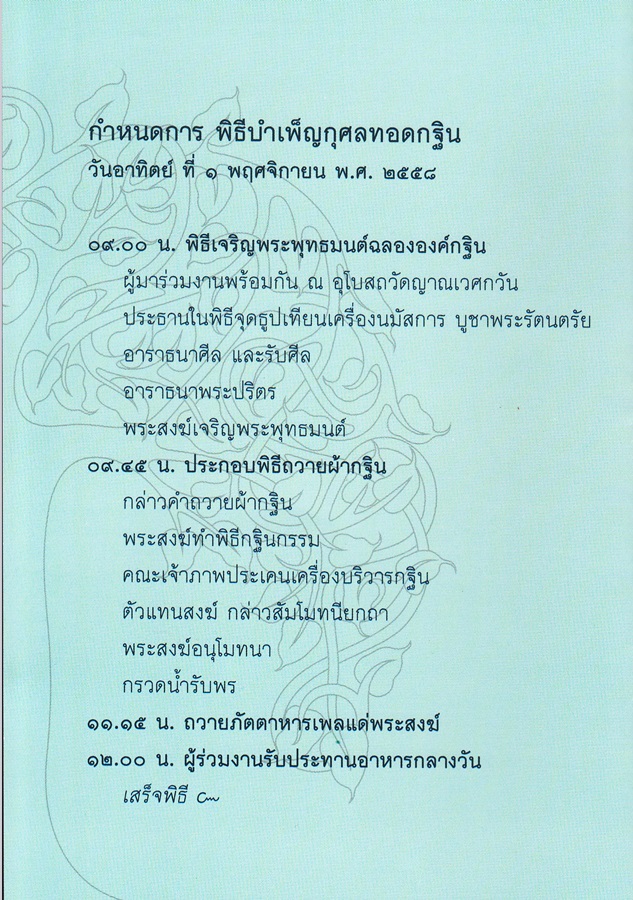 กำหนดการ พิธีบำเพ็ญกุศลทอดกฐิน
วันอาทิตย์ ที่ ๑ พฤศจิกายน พ.ศ. ๒๕๕๘
๐๙.๐๐ น. พิธีเจริญพระพุทธมนต์ฉลององค์กฐิน
ผู้มาร่วมงานพร้อมกัน ณ อุโบสถวัดญาณเวศกวัน
ประธานในพิธีจุดธูปเทียนเครื่องนมัสการ บูชาพระรัตนตรัย
อาราธนาศีล และรับศีล
อาราธนาพระปริตร
พระสงฆ์เจริญพระพุทธมนต์
๐๙.๔๕ น. ประกอบพิธีถวายผ้ากฐิน
กล่าวคำถวายผ้ากฐิน
พระสงฆ์ทำพิธีกฐินกรรม
คณะเจ้าภาพประเคนเครื่องบริวารกฐิน
ตัวแทนสงฆ์ กล่าวสัมโมทนียกถา
พระสงฆ์อนุโมทนา
กรวดน้ำรับพร
๑๑.๑๕ น. ถวายภัตตาหารเพลแด่พระสงฆ์
๑๒.๐๐ น. ผู้ร่วมงานรับประทานอาหารกลางวัน
เสร็จพิธี ๛